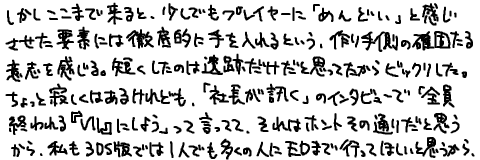 しかしここまで来ると、少しでもプレイヤーに「めんどい」と感じ
させた要素には徹底的に手を入れるという、作り手側の確固たる
意志を感じる。短くしたのは遺跡だけだと思ってたからビックリした。
ちょっと寂しくはあるけれども、「社長が訊く」のインタビューで「全員
終われる『VII』にしよう」って言ってて、それはホントその通りだと思う
から、私も3DS版では1人でも多くの人にEDまで行ってほしいと思うから、